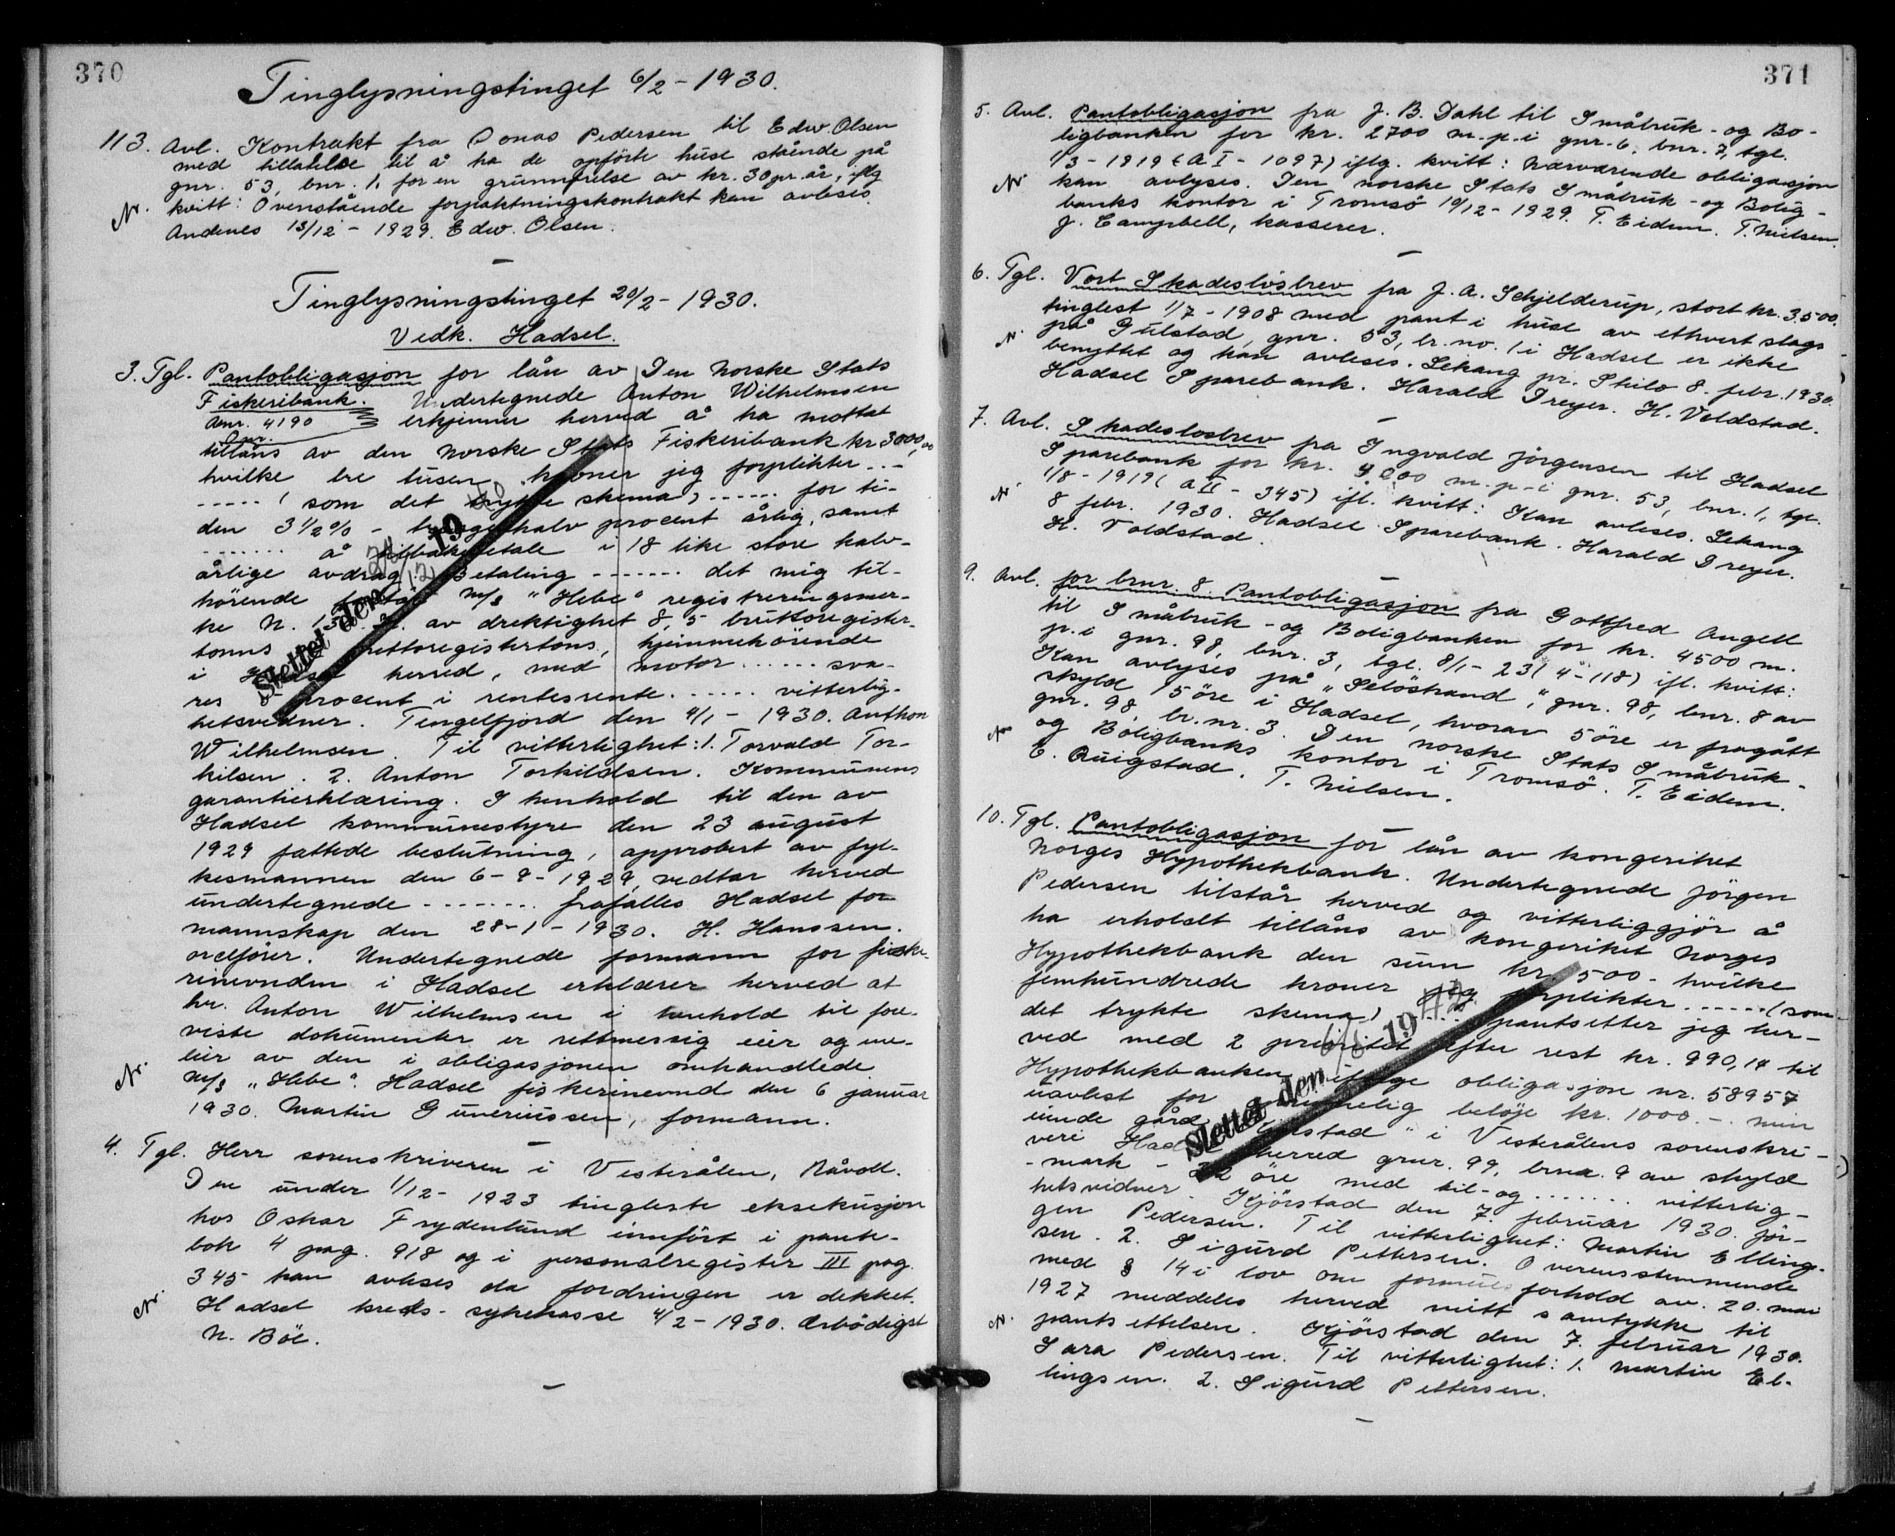 370
Tinglysningstinget 6/2 - 1930.
113. Avl. Kontrakt fra Jonas Pedersen til Edw. Olsen
med tillatelse til å ha de opförte huse stående på
gnr. 53, bnr. 1, for en grunnfrelse av kr. 30 pr. år, iflg
kvitt: Ovenstående forpaktningskontrakt kan avleses.
Nr. Andenes 13/12 - 1929. Edw. Olsen.
Tinglysningstinget 20/2 - 1930.
Vedk. Hadsel.
3. Tgl. Pantobligasjon for lån av Den Norske Stats
Fiskeribank. Undertegnede Anton Wilhelmsen
Anr. 4190 erkjenner herved å ha mottat
tillåns av den Norske Stats Fiskeribank kr 3000,00
hvilke tre tusen kroner jeg forplikter ..-
----- (som det trykte skema) ------ for ti-
den 3 1/2 % - halv procent årlig, samt
....... å tilbakebetale i 18 like store halv-
årlige avdrag. Betaling ------- det mig til-
hörende m/s "Hebe" registreringsmer-
ke N. av drektighet 8,5 bruttoregister-
tonns nettoregistertons, hjemmehörende
i Hadsel herred, med motor ...... sva-
res procent i rentesrente. ..... vitterlig-
hetsvidner. Tengelfjord den 4/1 - 1930. Anthon
Wilhelmsen. Til vitterlighet: 1. Torvald Tor-
kilsen. 2. Anton Torkildsen. Kommunens
garantierklæring. I henhold til den av
Hadsel kommunestyre den 23 august
1929 fattede beslutning, approbert av fyl-
kesmannen den 6-9-1929, vedtar herved
undertegnede -------- frafalles Hadsel for
mannskap den 28-1-1930. H. Hanssen.
ordförer. Undertegnede formann for fiske-
rinevnden i Hadsel erklærer herved at
hr. Anton Wilhelmsen i henhold til fore-
viste dokumenter er rettmessig eier og ene-
eier av den i obligasjonen omhandlede
Nr. m/s "Hebe". Hadsel fiskerinevnd den 6 januar
1930. Martin Gunerius­sen, formann.
Slettet den 19
4. Tgl. Herr sorenskriveren i Vesterålen, Råvoll.
Den under 1/12 - 1923 tingleste eksekusjon
hos Oskar Frydenlund innfört i pante-
bok 4 pag. 918 og i personalregister III pag.
345 kan avleses da fordringen er dekket.
Nr. Hadsel kreds-sykekasse 4/2 - 1930. Ærbödigst
N. Böe.
371
5. Avl. Pantobligasjon fra J. B. Dahl til Småbruk- og Bo-
ligbanken for kr. 2700 m. p. i gnr. 6, bnr. 7, tgl.
1/3 - 1919 (A I - 1097) iflg. kvitt: Nærværende obligasjon
Nr kan avlyses. Den norske Stats Småbruk- og Bolig-
banks kontor i Tromsö 10/12 - 1929. T. Eidem. T. Nielsen.
J. Campbell, kasserer.
6. Tgl. Vort Skadeslösbrev fra J. A. Schjelderup, stort kr. 3500.
tinglest 1/7 - 1908 med pant i huse av ethvert slags
N. på Gulstad, gnr. 53, br. no. 1 i Hadsel er ikke
benyttet og kan avleses. Lekang pr. Skilo 8. febr. 1930.
Hadsel Sparebank. Harald Dreyer. H. Voldstad.
7. Avl. Skadeslosbrev fra Ingvald Jörgensen til Hadsel
Sparebank for kr. 4000 m. p. i gnr. 53, bnr. 1, tgl.
1/8 - 1919 (A II - 345) ifl. kvitt: Kan avleses. Lekang
N 8 febr. 1930. Hadsel Sparebank. Harald Dreyer.
H. Voldstad.
9. Avl. for bnr. 8 Pantobligasjon fra Gottfred Angell
til Småbruk- og Boligbanken for kr. 4500 m.
p. i gnr. 98, bnr. 3, tgl. 8/1 - 23 (4 - 118) ifl. kvitt:
Kan avlyses på "Selöstrand", gnr. 98, bnr. 8 av
skyld 5 öre i Hadsel, hvorav 5 öre er fragått
gnr. 98, br. nr. 3. Den norske Stats Småbruk-
og Boligbanks kontor i Tromsö. T. Eidem.
E. Quigstad. T. Nielsen.
10. Tgl. Pantobligasjon for lån av kongeriket
Norges Hypothekbank. Undertegnede Jörgen
Pedersen tilstår herved og vitterliggjör å
ha erholdt tillåns av kongeriket Norges
Hypothekbank den sum kr. 500 - hvilke
femhundrede kroner jeg forplikter ..... (som
det trykte skema) ..... pantsetter jeg her-
ved med 2 prioritet efter rest kr. 990,14 til
Hypothekbanken ifölge obligasjon nr. 58957
uavlest for oprinnelig belöp kr. 1000 - min
eiende gård stad" i Vesterålens sorenskri-
veri Hadsel herred gnr. 99, bnr. 9 av skyld
- mark - 22 öre med til- og ....... vitterlig-
hetsvidner. Kjörstad den 7. februar 1930. Jör-
gen Pedersen. Til vitterlighet: Martin Elling-
sen. 2. Sigurd Pettersen. Overensstemmende
med § 14 i lov om formues forhold av 20. mai
1927 meddeles herved mitt samtykke til
N. pantsettelsen. Kjörstad den 7. februar 1930.
Sara Pedersen. Til vitterlighet: 1. Martin El-
lingsen. 2. Sigurd Pettersen.
Slettet den 6/8 1942